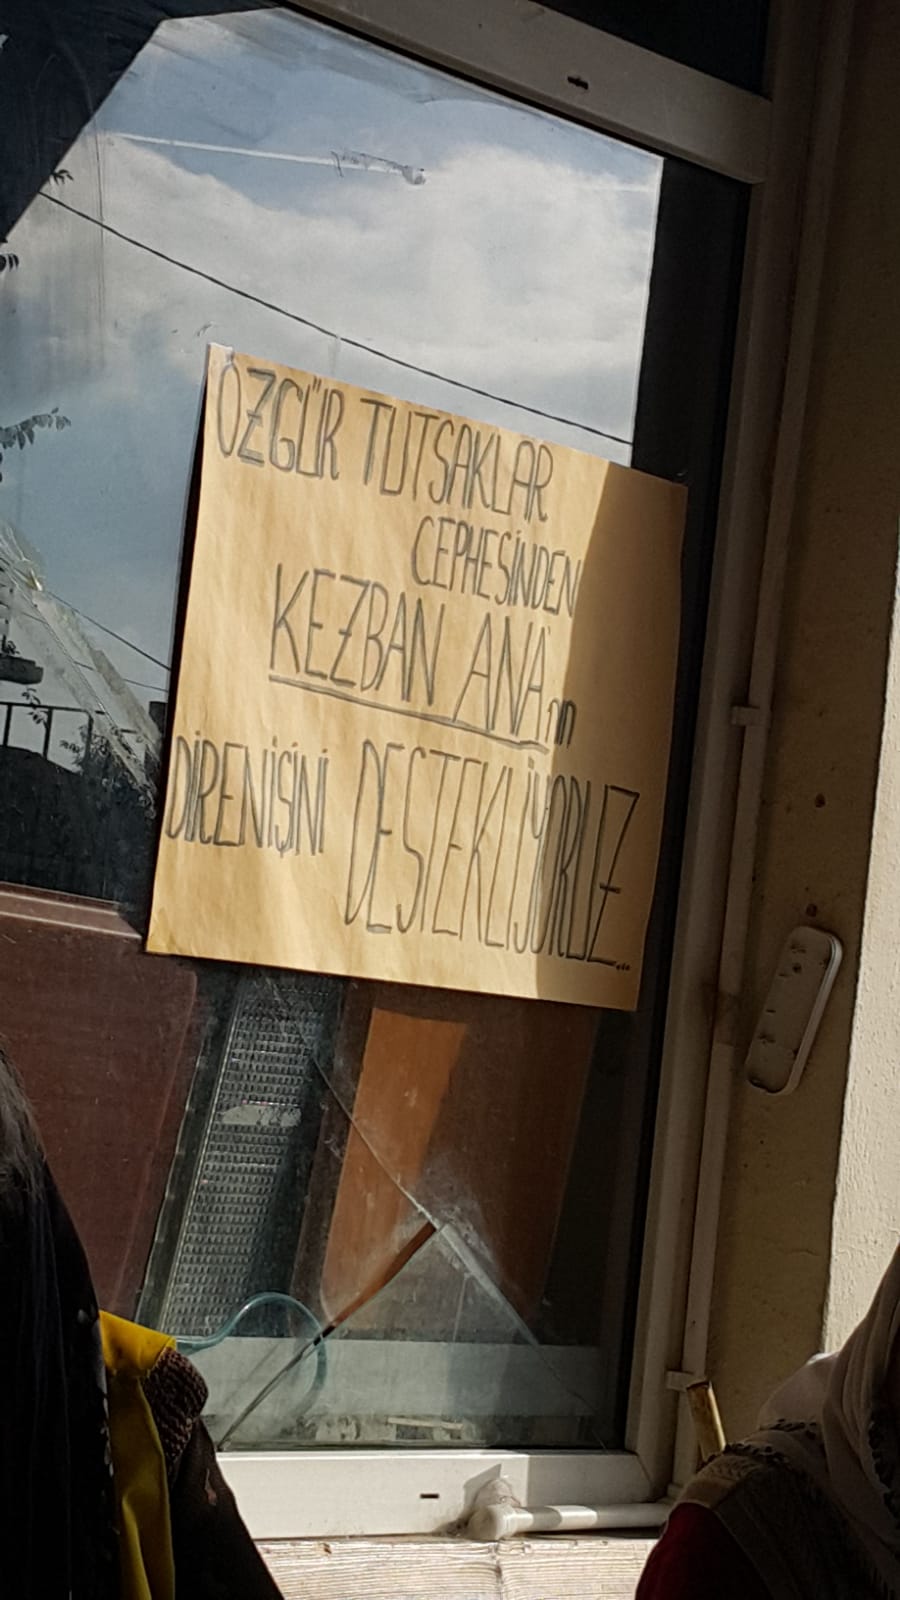 ÖZGÜR TUTSAKLAR
CEPHESİNDEN
KEZBAN ANA'nın
DİRENİŞİNİ DESTEKLİYORUZ...